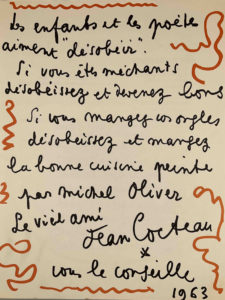 Les enfants et les poètes
aiment "désobéir".
Si vous êtes méchants
désobéissez et devenez bons
Si vous mangez vos ongles
désobeissez et mangez
la bonne cuisine peinte
par michel Oliver
Le vieil ami
Jean Cocteau
vous le conseille
1963